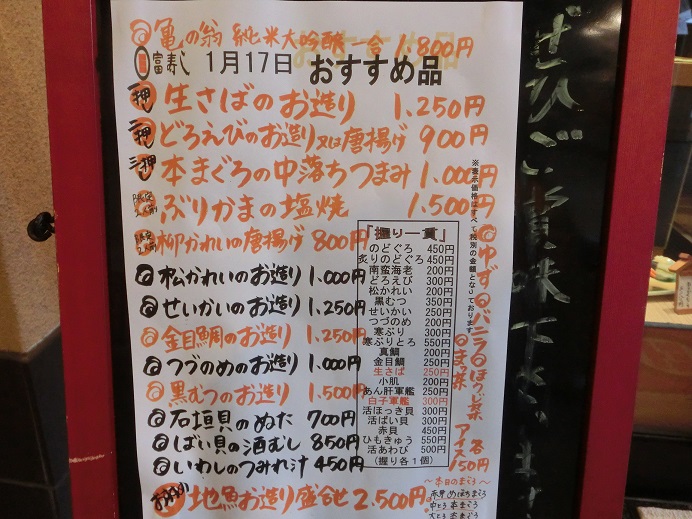 亀の翁 純米大吟醸 一合 1.800円
富寿し 1月17日 おすすめ品
一押 生さばのお造り 1.250円
二押 どろえびのお造り又は唐揚げ 900円
三押 本まぐろの中落ちつまみ 1.000円
ぶりかまの塩焼 1.500円
柳かれいの唐揚げ 800円
松かれいのお造り 1.000円
せいかいのお造り 1.250円
金目鯛のお造り 1.250円
つづのめのお造り 1.000円
黒むつのお造り 1.500円
石垣貝のぬた 700円
ばい貝の酒むし 850円
いわしのつみれ汁 450円
地魚お造り盛合せ 2.500円
『握り一貫』
のどぐろ 450円
炙りのどぐろ 450円
南蛮海老 200円
どろえび 300円
松かれい 200円
黒むつ 350円
せいかい 250円
つづのめ 200円
寒ぶり 300円
寒ぶりとろ 550円
真鯛 200円
金目鯛 250円
生さば 250円
小肌 200円
あん肝軍艦 250円
白子軍艦 300円
活ほっき貝 300円
活ばい貝 300円
赤貝 450円
ひもきゅう 550円
活あわび 500円
(握り各1個)
※表示価格はすべて税別の金額となっております
ゆず バニラ ほうじ茶
まっ茶
アイス各150円
〜本日のまぐろ〜
赤身 めばちまぐろ
中とろ 本まぐろ
大とろ 本まぐろ
ぜひご賞味下さいませ